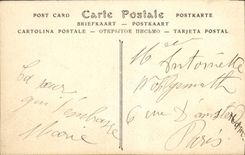 POST CARD Carte Postale POSTKARTE
BRIEFKAART — POSTKAART
CARTOLINA POSTALE — ОТКРЫТОЕ ПИСЬМО — TARJETA POSTAL
Melle Antoinette
6 rue
Paris
Ta sœur
qui t'embrasse
Marie